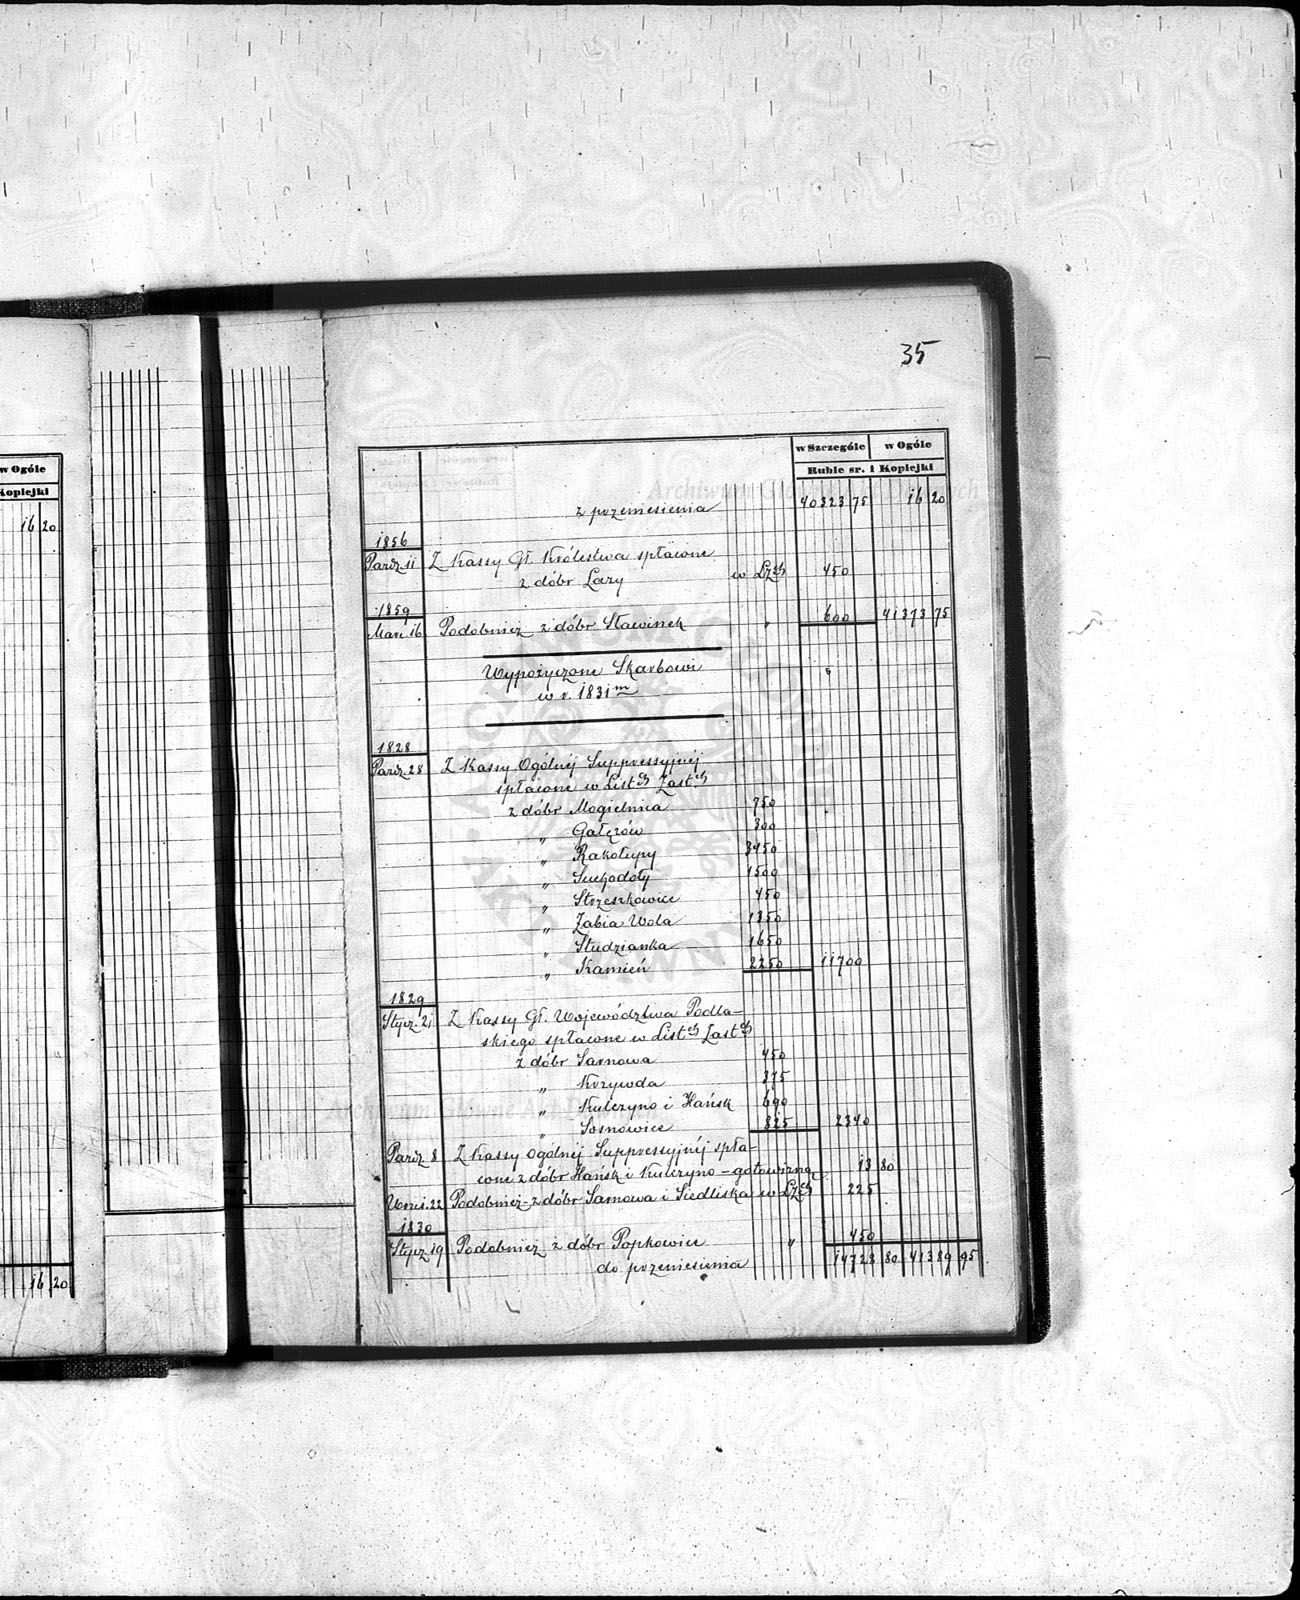 35
w Szczególe w Ogóle
Ruble sr. i Kopiejki
w Ogóle
Kopiejki
16 20
z przeniesienia 40323 75 16 20
1856
Paźdz. 11 Z Kassy Gł. Królestwa spłacone
z dóbr Łazy w Lz.ch 450
1859
Mar. 16 Podobnież z dóbr Sławinek " 600 41373 75
Wypożyczone Skarbowi
w r. 1831m
1828
Paźdz. 28 Z Kassy Ogólnéj Suppressyjnéj
spłacone w List.ch Zast.ch
z dóbr Mogielnica 750
" Gałęzów 300
" Rakołupy 3450
" Suchodoły 1500
" Strzeszkowice 450
" Żabia Wola 1350
" Studzianka 1650
" Kamień 2250 11700
1829
Stycz. 21 Z Kassy Gł. Województwa Podla-
skiego spłacone w List.ch Zast.ch
z dóbr Sarnowa 450
" Krzywda 375
" Kulczyno i Hańsk 690
" Sosnowice 825 2340
Paźdz. 8 Z Kassy Ogólnéj Suppressyjnéj spła-
cone z dóbr Hańsk i Kulczyno – gotowizną 13 80
22 Podobnież z dóbr Sarnowa i Siedliska w Lz.ch 225
1830
Stycz. 19 Podobnież z dóbr Popkowice " 450
do przeniesienia 14728 80 41389 95
16 20
Archiwum Główne Akt Dawnych